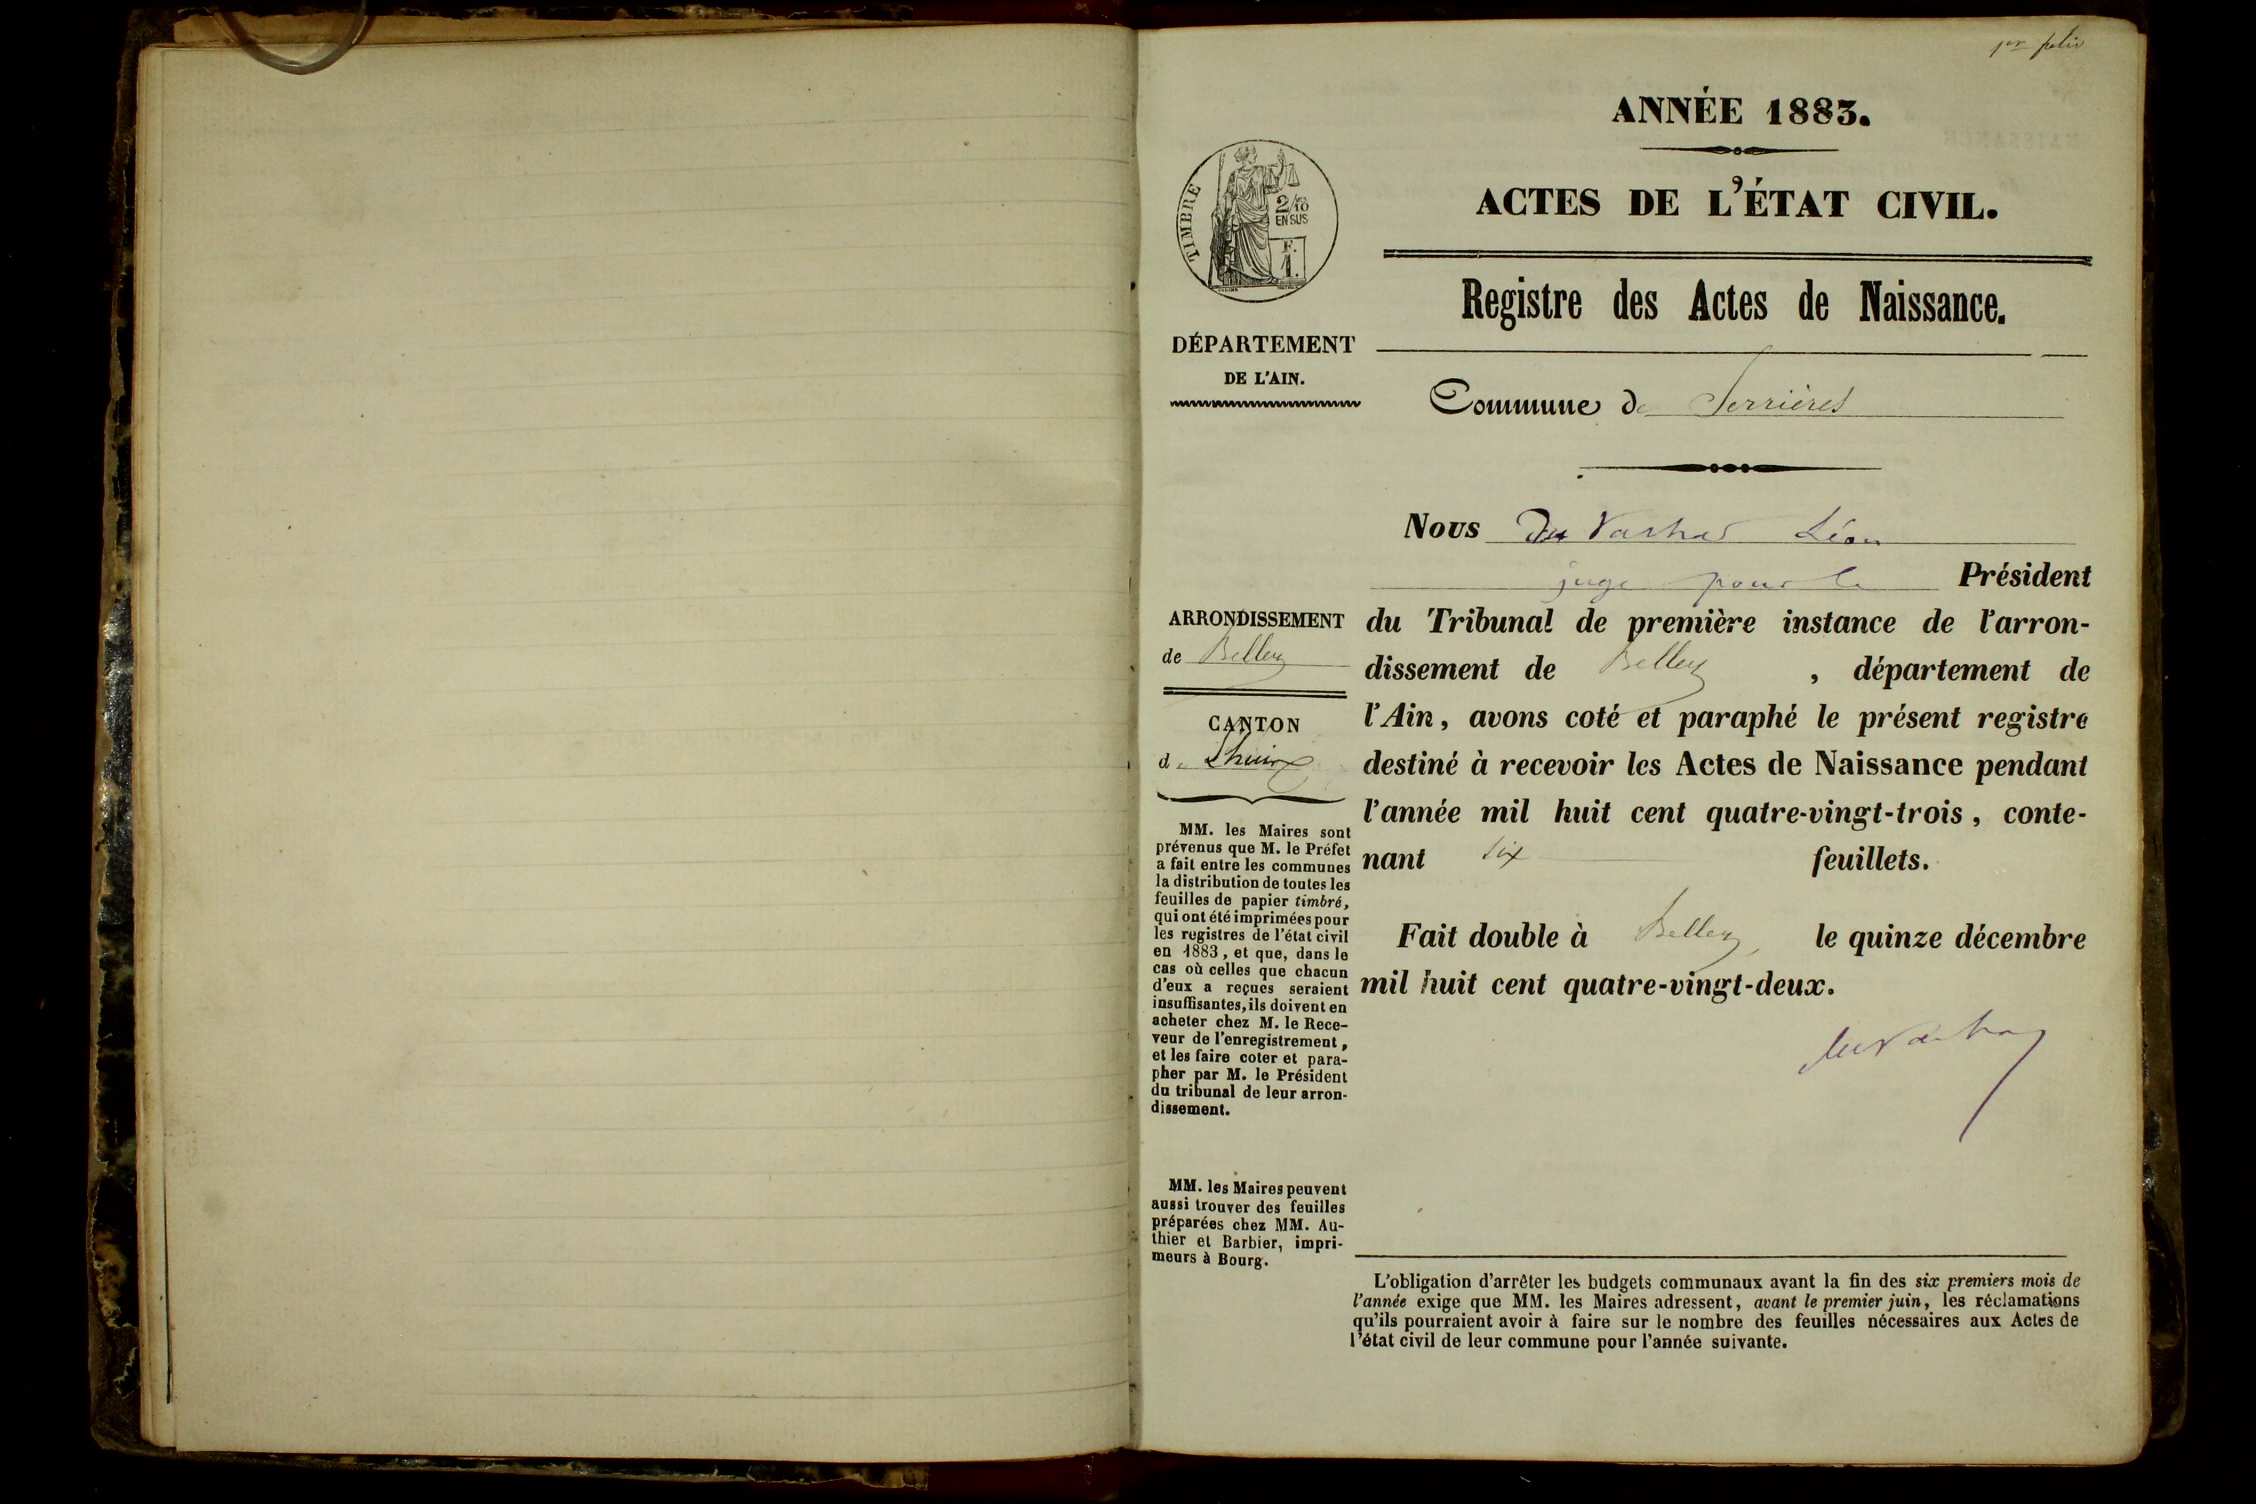 1er folio
ANNÉE 1883.
ACTES DE L'ÉTAT CIVIL.
TIMBRE
2/10
EN SUS
F.
1.
Registre des Actes de Naissance.
DÉPARTEMENT
DE L'AIN.
Commune de Serrières
Nous Léon
juge pour le Président
ARRONDISSEMENT
de Belley
CANTON
de Lhuis
du Tribunal de première instance de l'arron-
dissement de Belley , département de
l'Ain, avons coté et paraphé le présent registre
destiné à recevoir les Actes de Naissance pendant
l'année mil huit cent quatre-vingt-trois, conte-
nant six feuillets.
Fait double à Belley le quinze décembre
mil huit cent quatre-vingt-deux.
MM. les Maires sont
prévenus que M. le Préfet
a fait entre les communes
la distribution de toutes les
feuilles de papier timbré,
qui ont été imprimées pour
les registres de l'état civil
en 1883, et que, dans le
cas où celles que chacun
d'eux a reçues seraient
insuffisantes, ils doivent en
acheter chez M. le Rece-
veur de l'enregistrement,
et les faire coter et para-
pher par M. le Président
du tribunal de leur arron-
dissement.
MM. les Maires peuvent
aussi trouver des feuilles
préparées chez MM. Au-
thier et Barbier, impri-
meurs à Bourg.
L'obligation d'arrêter les budgets communaux avant la fin des six premiers mois de
l'année exige que MM. les Maires adressent, avant le premier juin, les réclamations
qu'ils pourraient avoir à faire sur le nombre des feuilles nécessaires aux Actes de
l'état civil de leur commune pour l'année suivante.